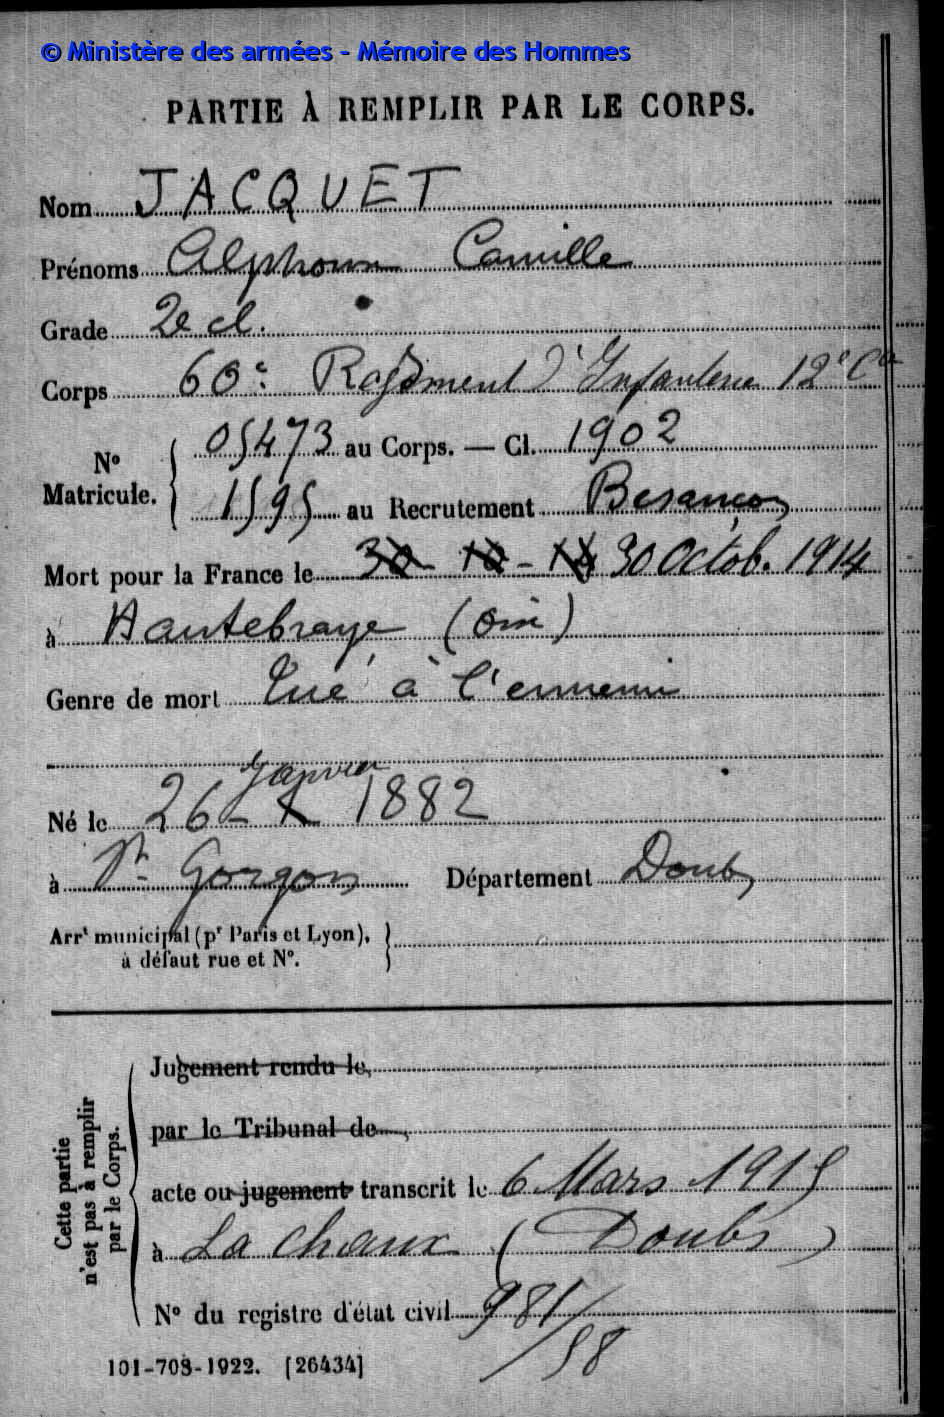 © Ministère des armées - Mémoire des Hommes
PARTIE À REMPLIR PAR LE CORPS.
Nom JACQUET
Prénoms Alphonse Camille
Grade 2e cl.
Corps 60e Régiment d'Infanterie 12e Cie
No Matricule. { 05473 au Corps. — Cl. 1902
1595 au Recrutement Besançon
Mort pour la France le 30 - 10 - 14 30 Octob. 1914
à Hautebraye (Oise)
Genre de mort Tué à l'ennemi
Janvier
Né le 26 - 1 1882
à St. Gorgon Département Doubs
Arrt municipal (pr Paris et Lyon),
à défaut rue et No.
Cette partie
n'est pas à remplir
par le Corps.
Jugement rendu le,
par le Tribunal de ,
acte ou jugement transcrit le 6 Mars 1915
à La Chaux (Doubs)
No du registre d'état civil 981/58
101-708-1922. [26434]